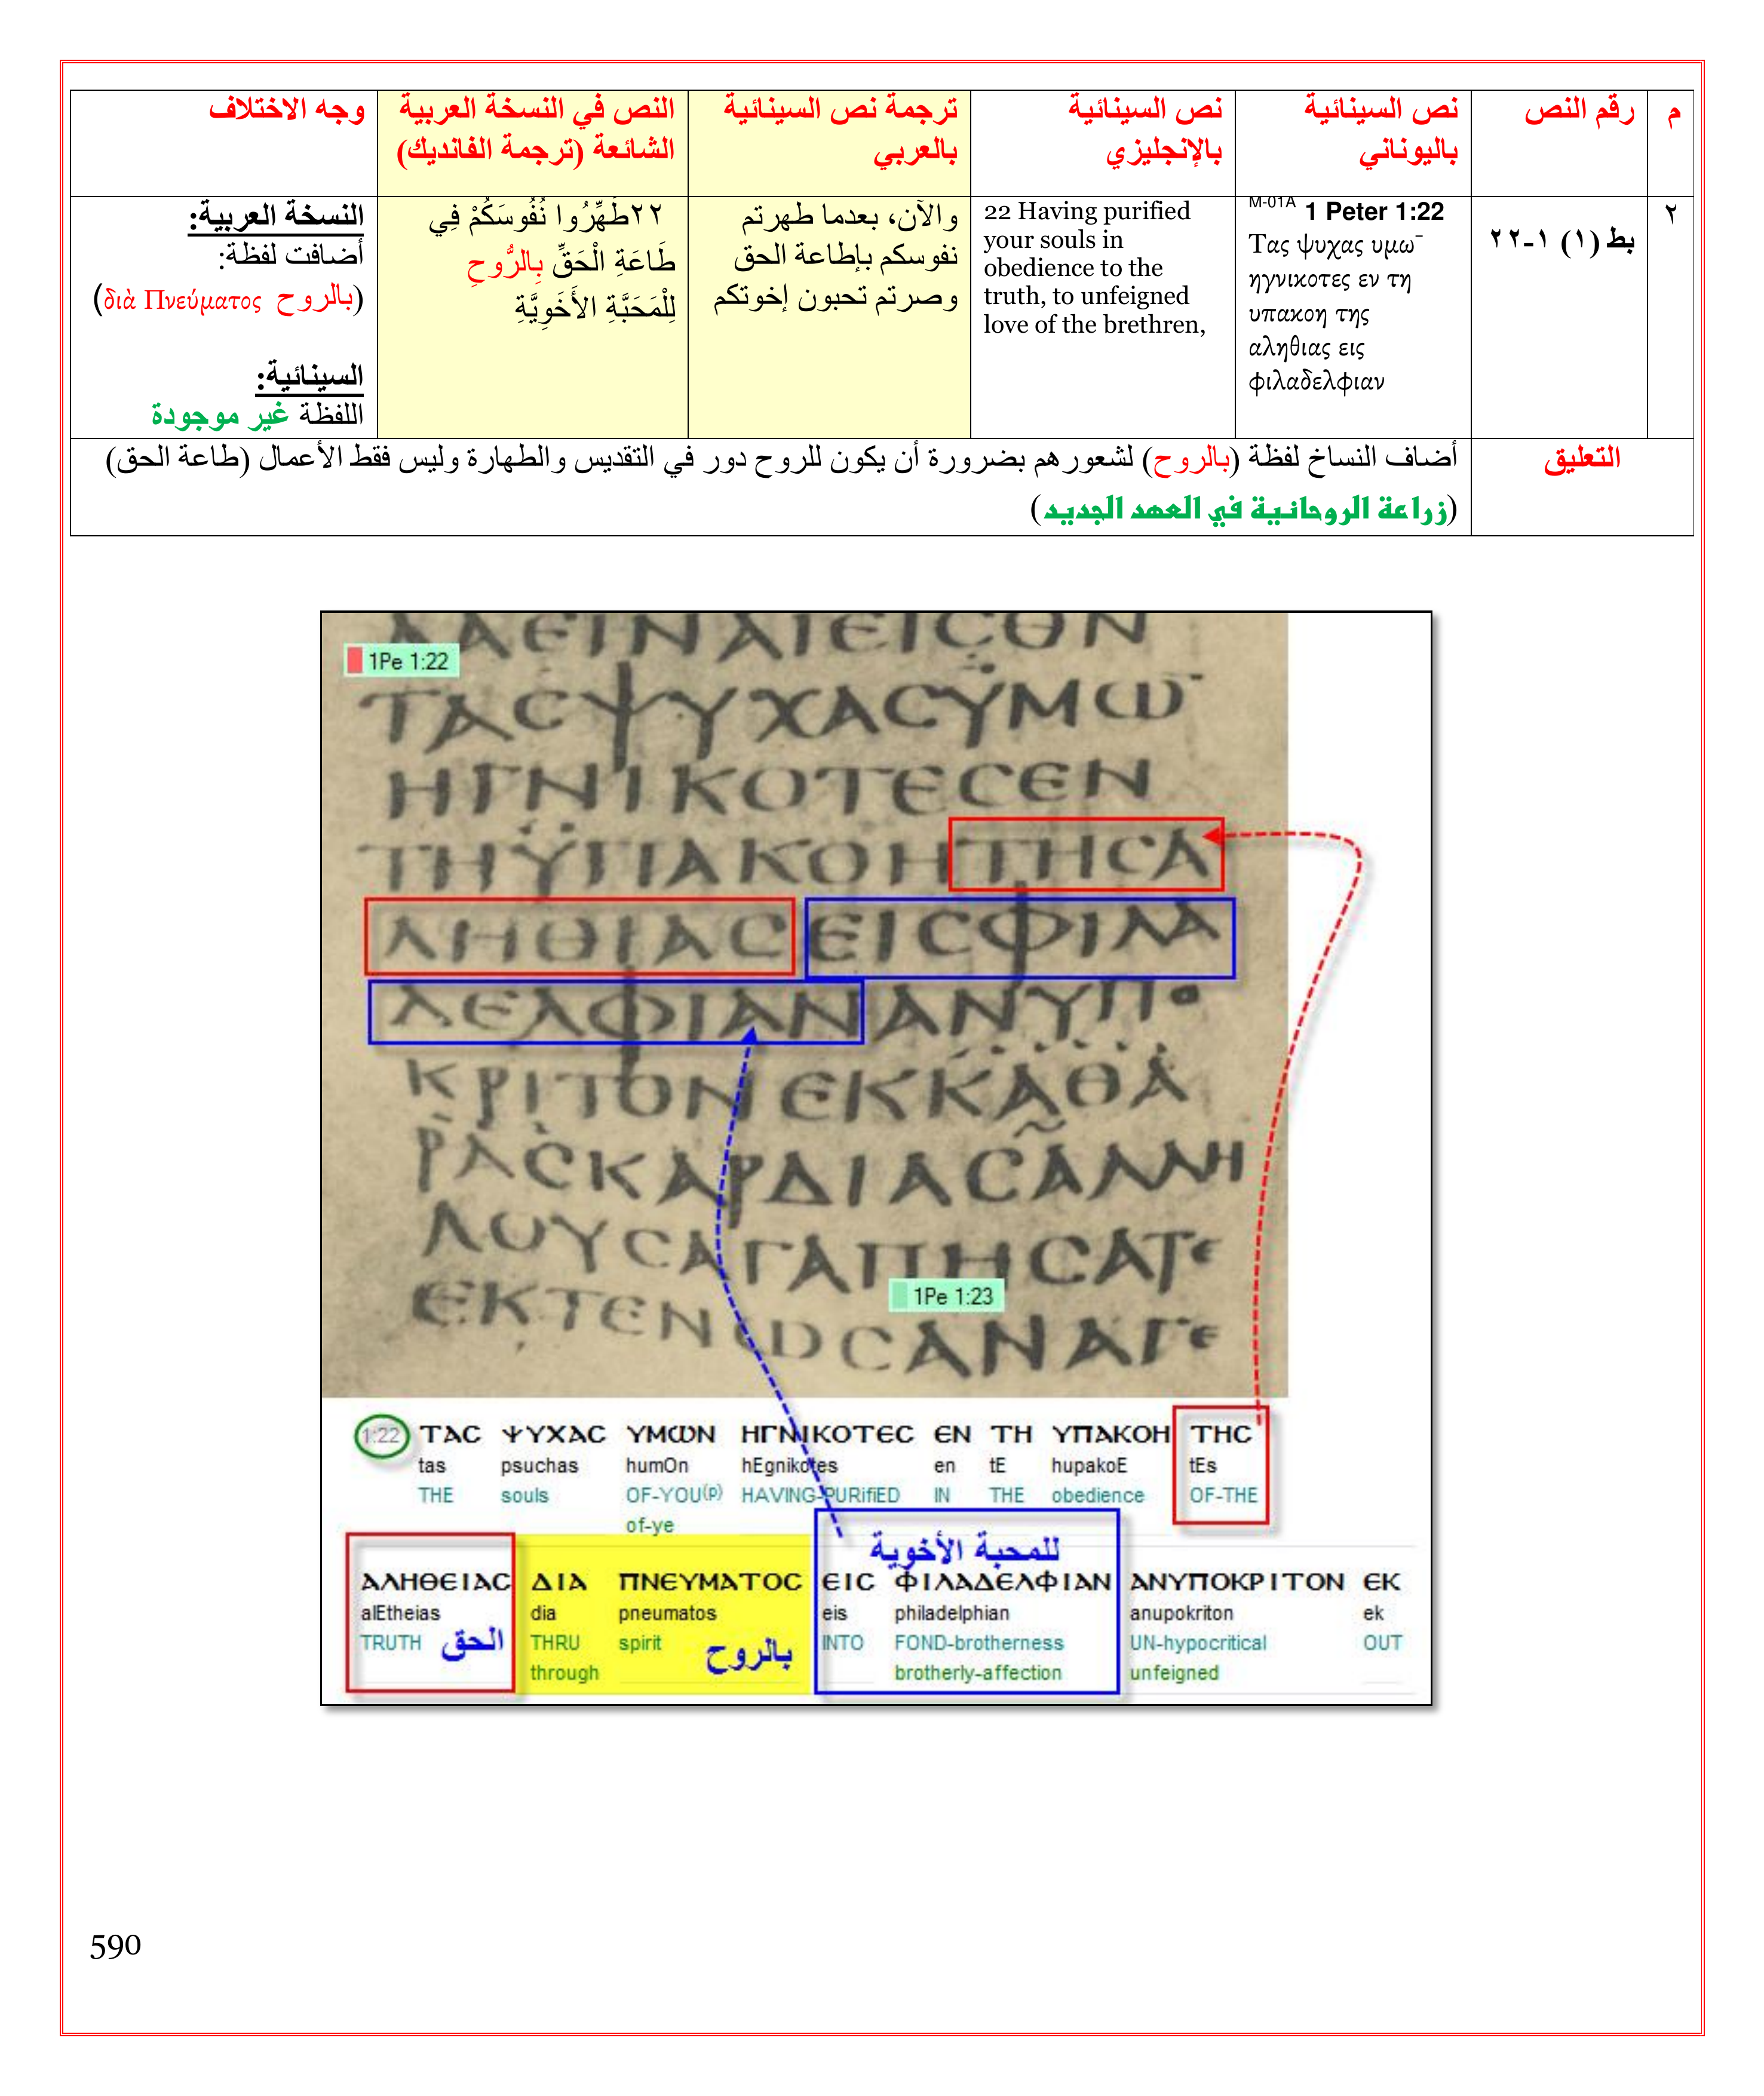 م
رقم النص
نص السينائية
باليوناني
نص السينائية
بالإنجليزي
ترجمة نص السينائية
بالعربي
النص في النسخة العربية
الشائعة (ترجمة الفانديك)
وجه الاختلاف
٢
بط (١) ١-٢٢
M-01A 1 Peter 1:22
Τας ψυχας υμω¯
ηγνικοτες εν τη
υπακοη της
αληθιας εις
φιλαδελφιαν
22 Having purified
your souls in
obedience to the
truth, to unfeigned
love of the brethren,
والآن، بعدما طهرتم
نفوسكم بإطاعة الحق
وصرتم تحبون إخوتكم
٢٢طَهِّرُوا نُفُوسَكُمْ فِي
طَاعَةِ الْحَقِّ بِالرُّوحِ
لِلْمَحَبَّةِ الأَخَوِيَّةِ
النسخة العربية:
أضافت لفظة:
(بالروح διὰ Πνεύματος)
السينائية:
اللفظة غير موجودة
التعليق
أضاف النساخ لفظة (بالروح) لشعورهم بضرورة أن يكون للروح دور في التقديس والطهارة وليس فقط الأعمال (طاعة الحق)
(زراعة الروحانية في العهد الجديد)
1Pe 1:22
ΤΑCΨΥΧΑCΫΜΩ¯
ΗΓΝΙΚΟΤΕCΕΝ
ΤΗΫΠΑΚΟΗΤΗCΑ
ΛΗΘΙΑCΕΙCΦΙΛΑ
ΔΕΛΦΙΑΝΑΝΥΠΟ
ΚΡΙΤΟΝΕΚΚΑΘΑ
ΡΑCΚΑΡΔΙΑCΑΛΛΗ
ΛΟΥCΑΓΑΠΗCΑΤΕ
1Pe 1:23
ΕΚΤΕΝΩCΑΝΑΓΕ
1:22 ΤΑC ΨΥΧΑC ΥΜΩΝ ΗΓΝΙΚΟΤΕC ΕΝ ΤΗ ΥΠΑΚΟΗ ΤΗC
tas psuchas humOn hEgnikotes en tE hupakoE tEs
THE souls OF-YOU(p) HAVING-PURifiED IN THE obedience OF-THE
of-ye
للمحبة الأخوية
ΑΛΗΘΕΙΑC ΔΙΑ ΠΝΕΥΜΑΤΟC ΕΙC ΦΙΛΑΔΕΛΦΙΑΝ ΑΝΥΠΟΚΡΙΤΟΝ ΕΚ
alEtheias dia pneumatos eis philadelphian anupokriton ek
TRUTH الحق THRU spirit بالروح INTO FOND-brotherness UN-hypocritical OUT
through brotherly-affection unfeigned
590